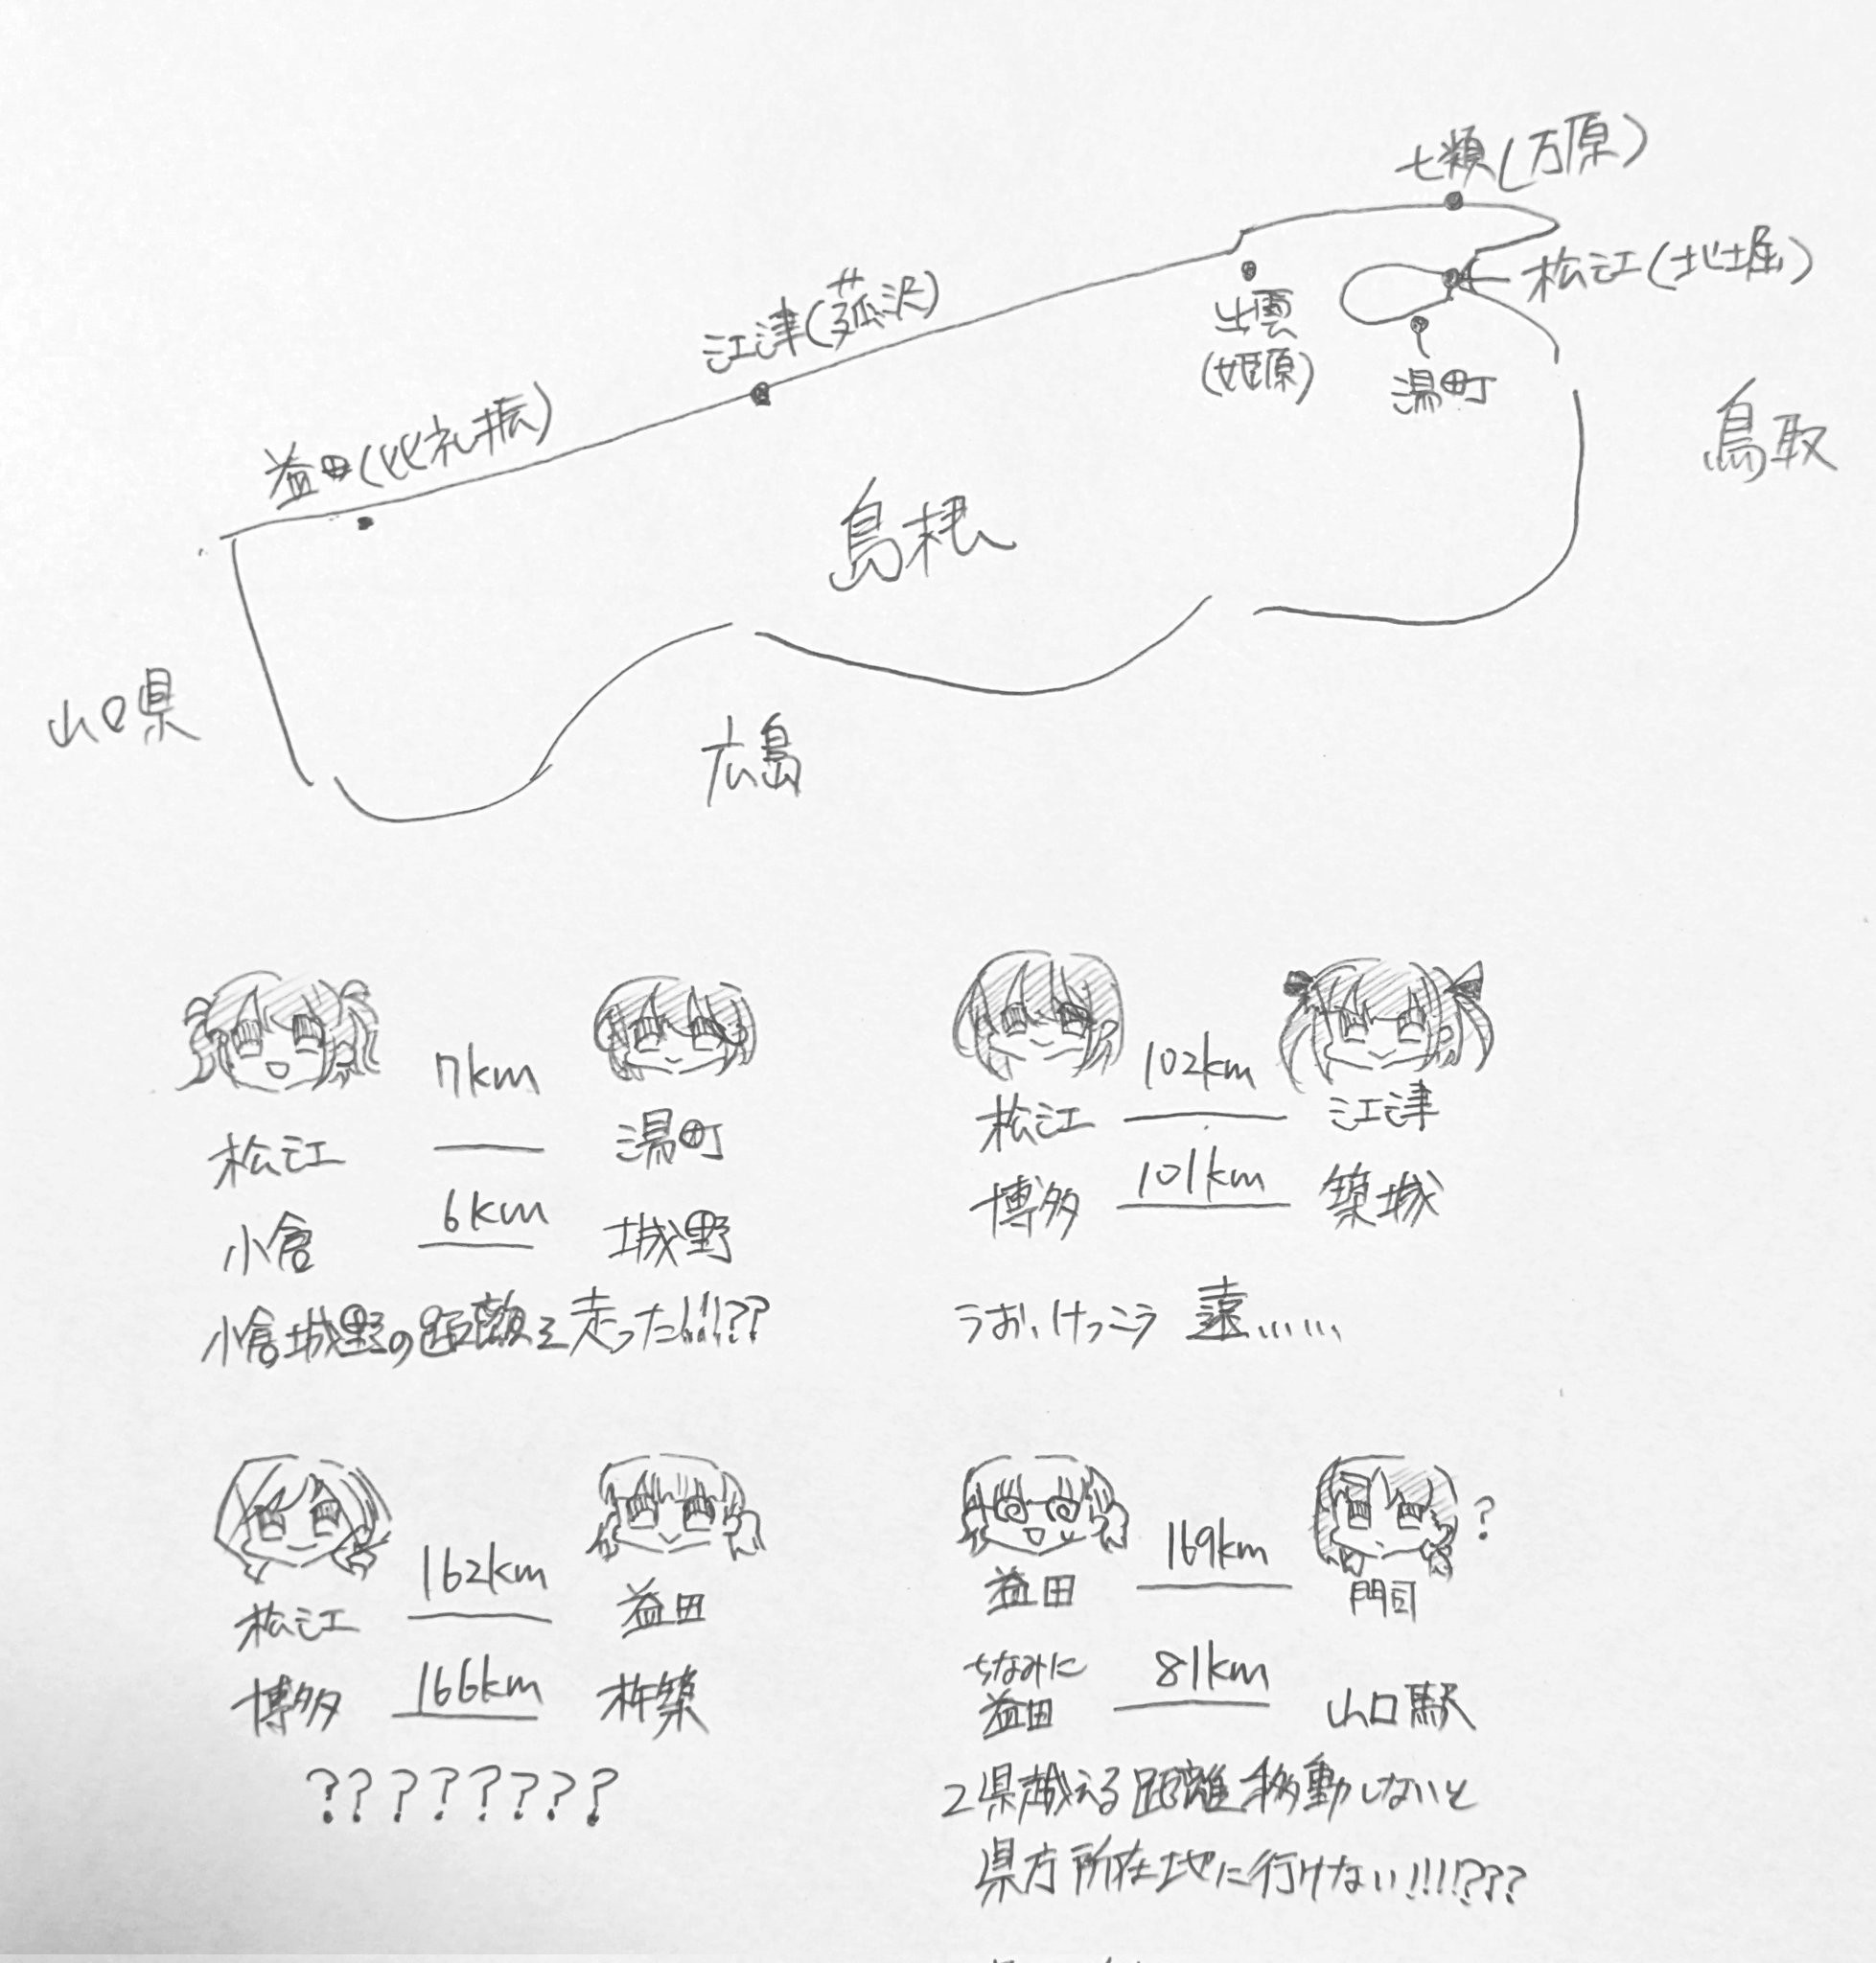 七類(万原)
松江(北堀)
江津(菰沢)
出雲
(姫原)
湯町
益田(比礼振)
鳥取
島根
山口県
広島
7km
松江 湯町
6km
小倉 城野
小倉城野の距離を走った!!!??
102km
松江 江津
101km
博多 築城
うお、けっこう 遠……
162km
松江 益田
166km
博多 杵築
????????
169km ?
益田 門司
ちなみに
81km
益田 山口駅
2県越える距離移動しないと
県庁所在地に行けない!!!!???